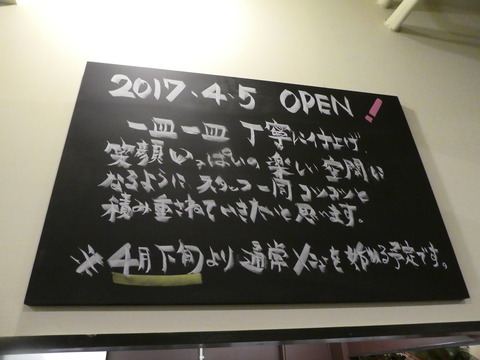 2017.4.5 OPEN!
一皿一皿 丁寧に仕上げ
笑顔いっぱいの楽しい空間に
なるように、スタッフ一同コツコツと
積み重さねていきたいと思います。
※4月下旬より通常メニューを始める予定です。